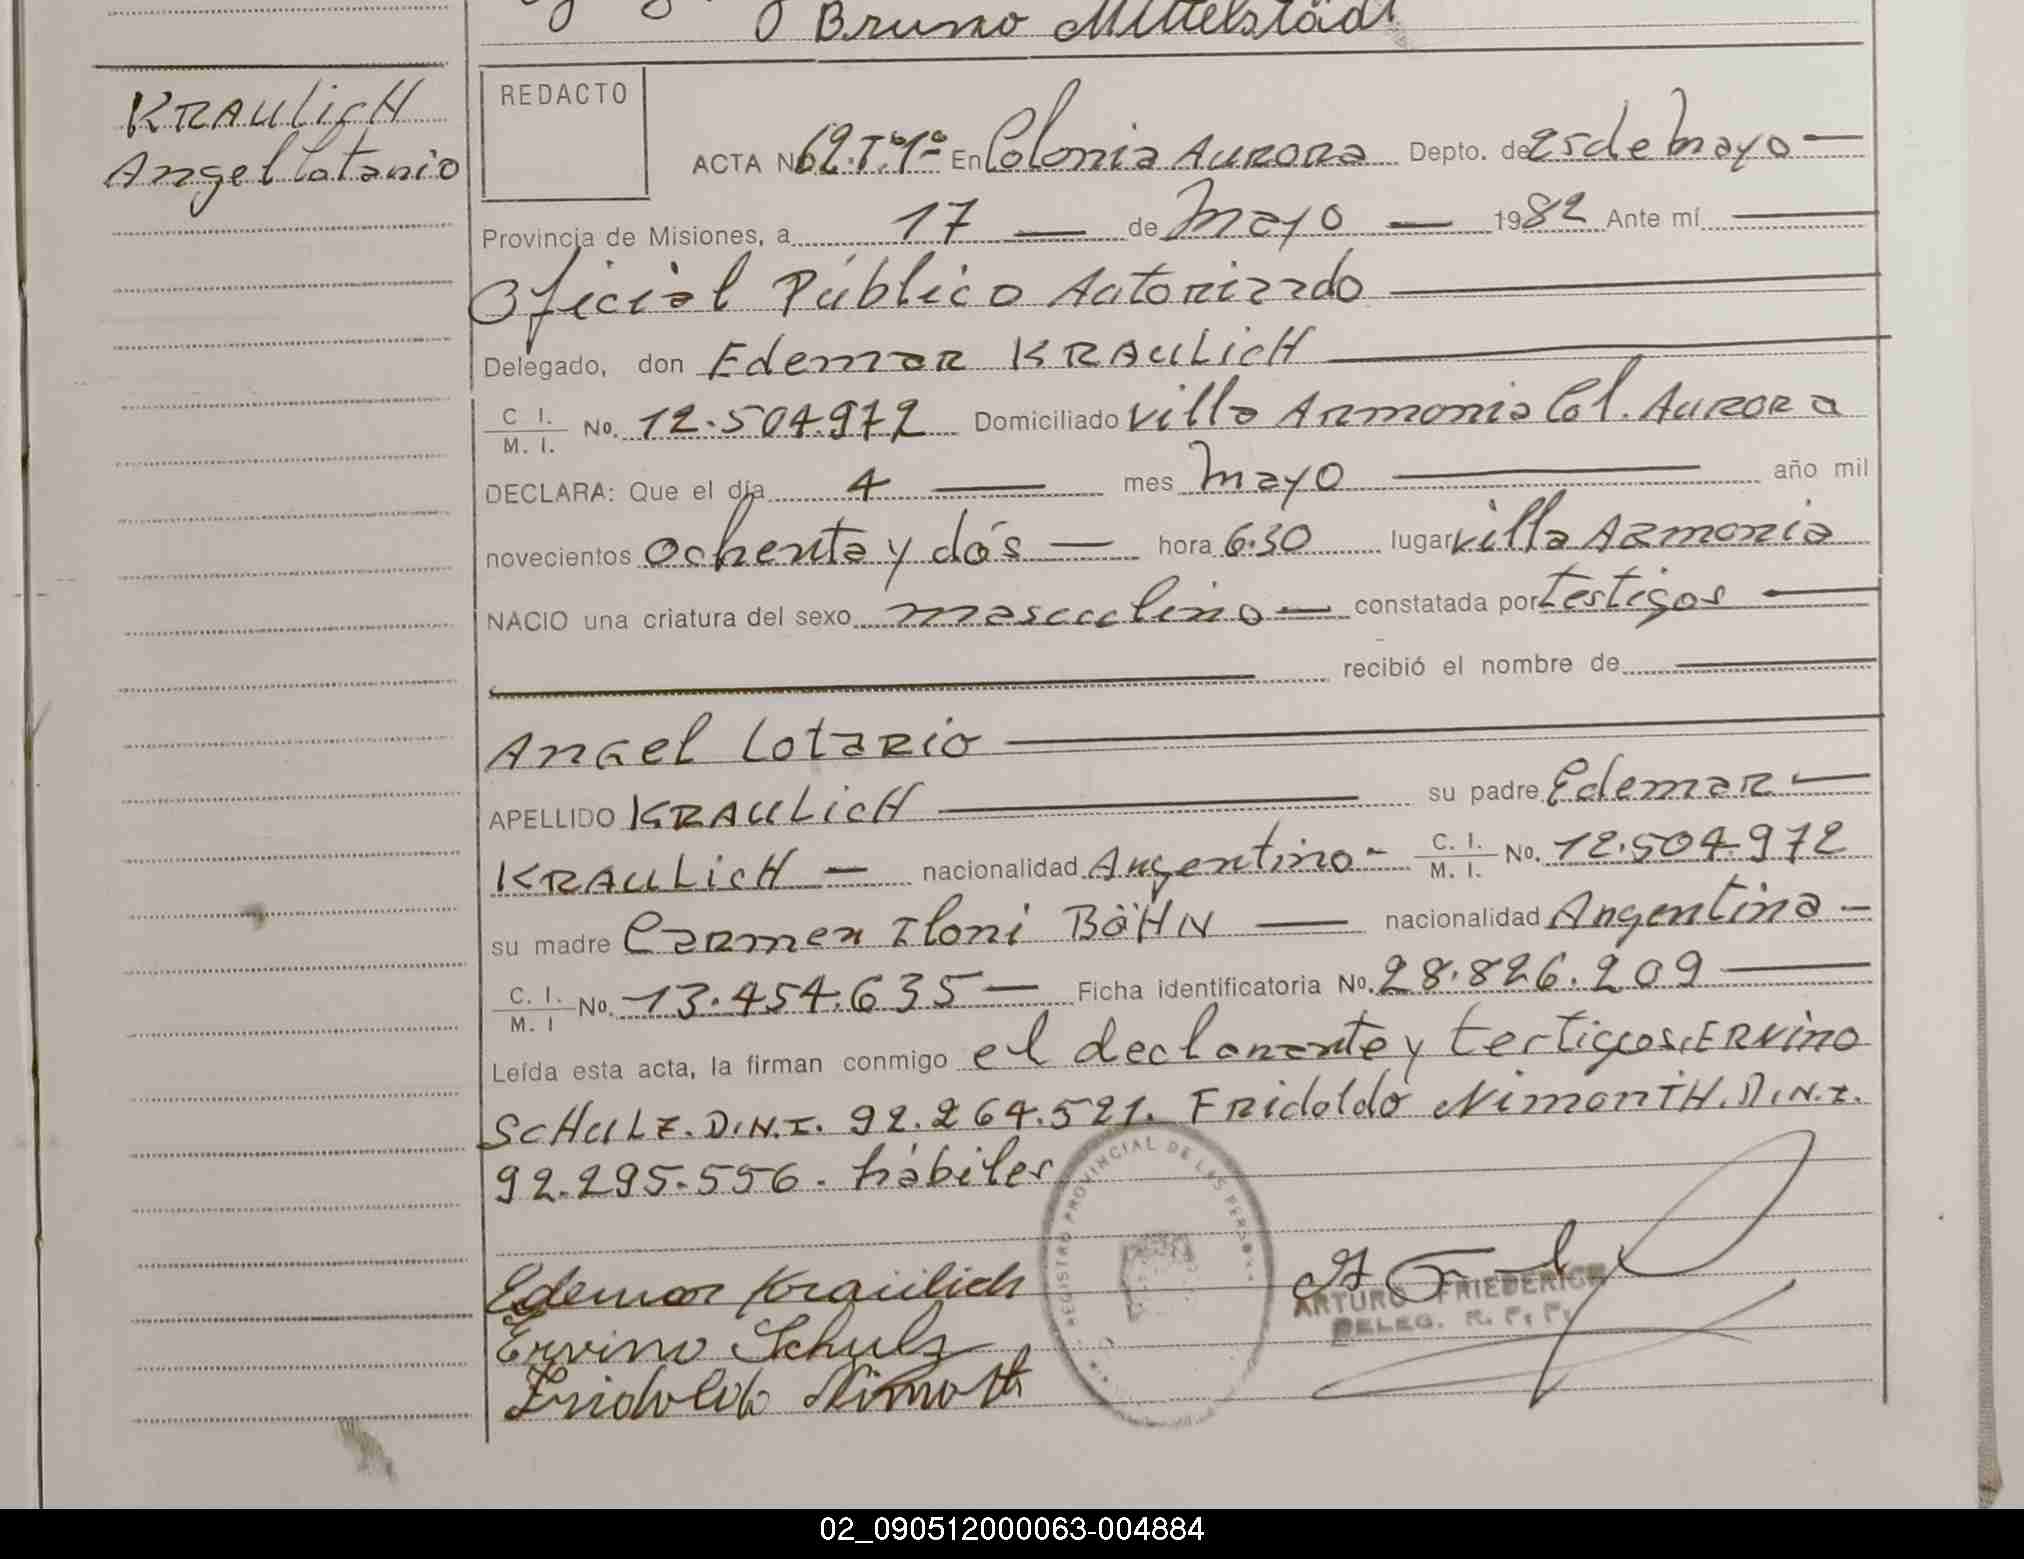 Bruno Mittelstädt
KRAULicH
Angel Lotario
REDACTO
ACTA No 62.T.1º En Colonia AURORA Depto. de 25 de Mayo
Provincia de Misiones, a 17 de Mayo 1982 Ante mí
Oficial Público Autorizado
Delegado, don Edemar KRAULicH
C. I. / M. I. No. 12.504.972 Domiciliado Villa Armonia Col. AURORA
DECLARA: Que el día 4 mes Mayo año mil
novecientos ochenta y dós hora 6.30 lugar Villa Armonia
NACIO una criatura del sexo masculino constatada por testigos
recibió el nombre de
Angel Lotario
APELLIDO KRAULicH su padre Edemar
KRAULicH nacionalidad Argentino C. I. / M. I. No. 12.504.972
su madre Carmen Iloni BöHN nacionalidad Argentina
C. I. / M. I No. 13.454.635 Ficha identificatoria No. 28.826.209
Leída esta acta, la firman conmigo el declarante y testigos, ERVino
ScHULZ. D.N.I. 92.264.521. Fridoldo NimonTH. D.N.I.
92.295.556. hábiles
REGISTRO PROVINCIAL DE LAS PERSONAS
Edemar Kraulich
Ervino Schulz
Fridoldo Nimoth
ARTURO FRIEDERICH
DELEG. R. P. P.
02_090512000063-004884